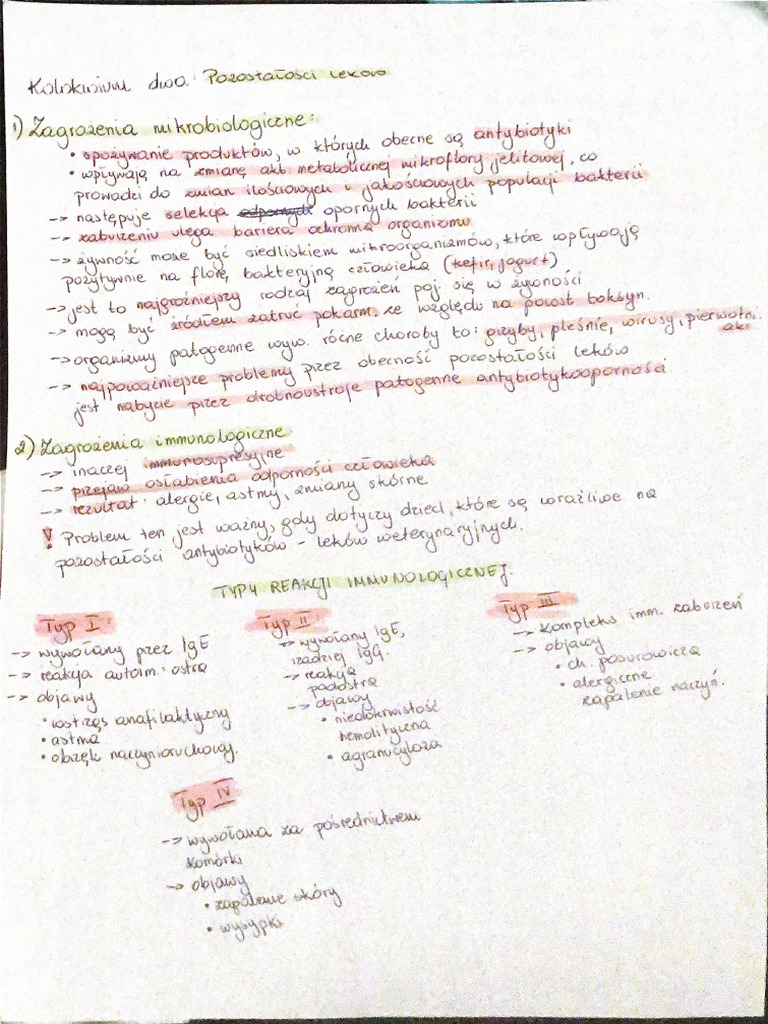 Kolokwium dwa: Pozostałości leków
1) Zagrożenia mikrobiologiczne:
• spożywanie produktów, w których obecne są antybiotyki
• wpływają na zmianę akt. metabolicznej mikroflory jelitowej, co
prowadzi do zmian ilościowych i jakościowych populacji bakterii
-> następuje selekcja odpornych opornych bakterii
-> zaburzeniu ulega bariera ochronna organizmu
-> żywność może być siedliskiem mikroorganizmów, które wpływają
pozytywnie na florę bakteryjną człowieka (kefir, jogurt)
-> jest to najgroźniejszy rodzaj zagrożeń poj. się w żywności
-> mogą być źródłem zatruć pokarm. ze względu na powst toksyn.
-> organizmy patogenne wyw. różne choroby to: grzyby, pleśnie, wirusy, pierwotni.
aki
-> najpoważniejsze problemy przez obecność pozostałości leków
jest nabycie przez drobnoustroje patogenne antybiotykooporności
2) Zagrożenia immunologiczne
-> inaczej immunosupresyjne
-> przejaw osłabienia odporności człowieka
-> rezultat: alergie, astmy, zmiany skórne
! Problem ten jest ważny, gdy dotyczy dzieci, które są wrażliwe na
pozostałości antybiotyków - leków weterynaryjnych.
TYPY REAKCJI IMMUNOLOGICZNEJ.
Typ I:
-> wywołany przez IgE
-> reakcja autoim.: ostra
-> objawy
• wstrząs anafilaktyczny
• astma
• obrzęk naczynioruchowy.
Typ II:
-> wywołany IgE,
rzadziej IgG.
-> reakcja
podostra
-> objawy
• niedokrwistość
hemolityczna
• agranulocytoza
Typ III
-> kompleks imm. zaburzeń
-> objawy
• ch. posurowicza
• alergiczne
zapalenie naczyń.
Typ IV
-> wywołana za pośrednictwem
komórki
-> objawy
• zapalenie skóry
• wysypki